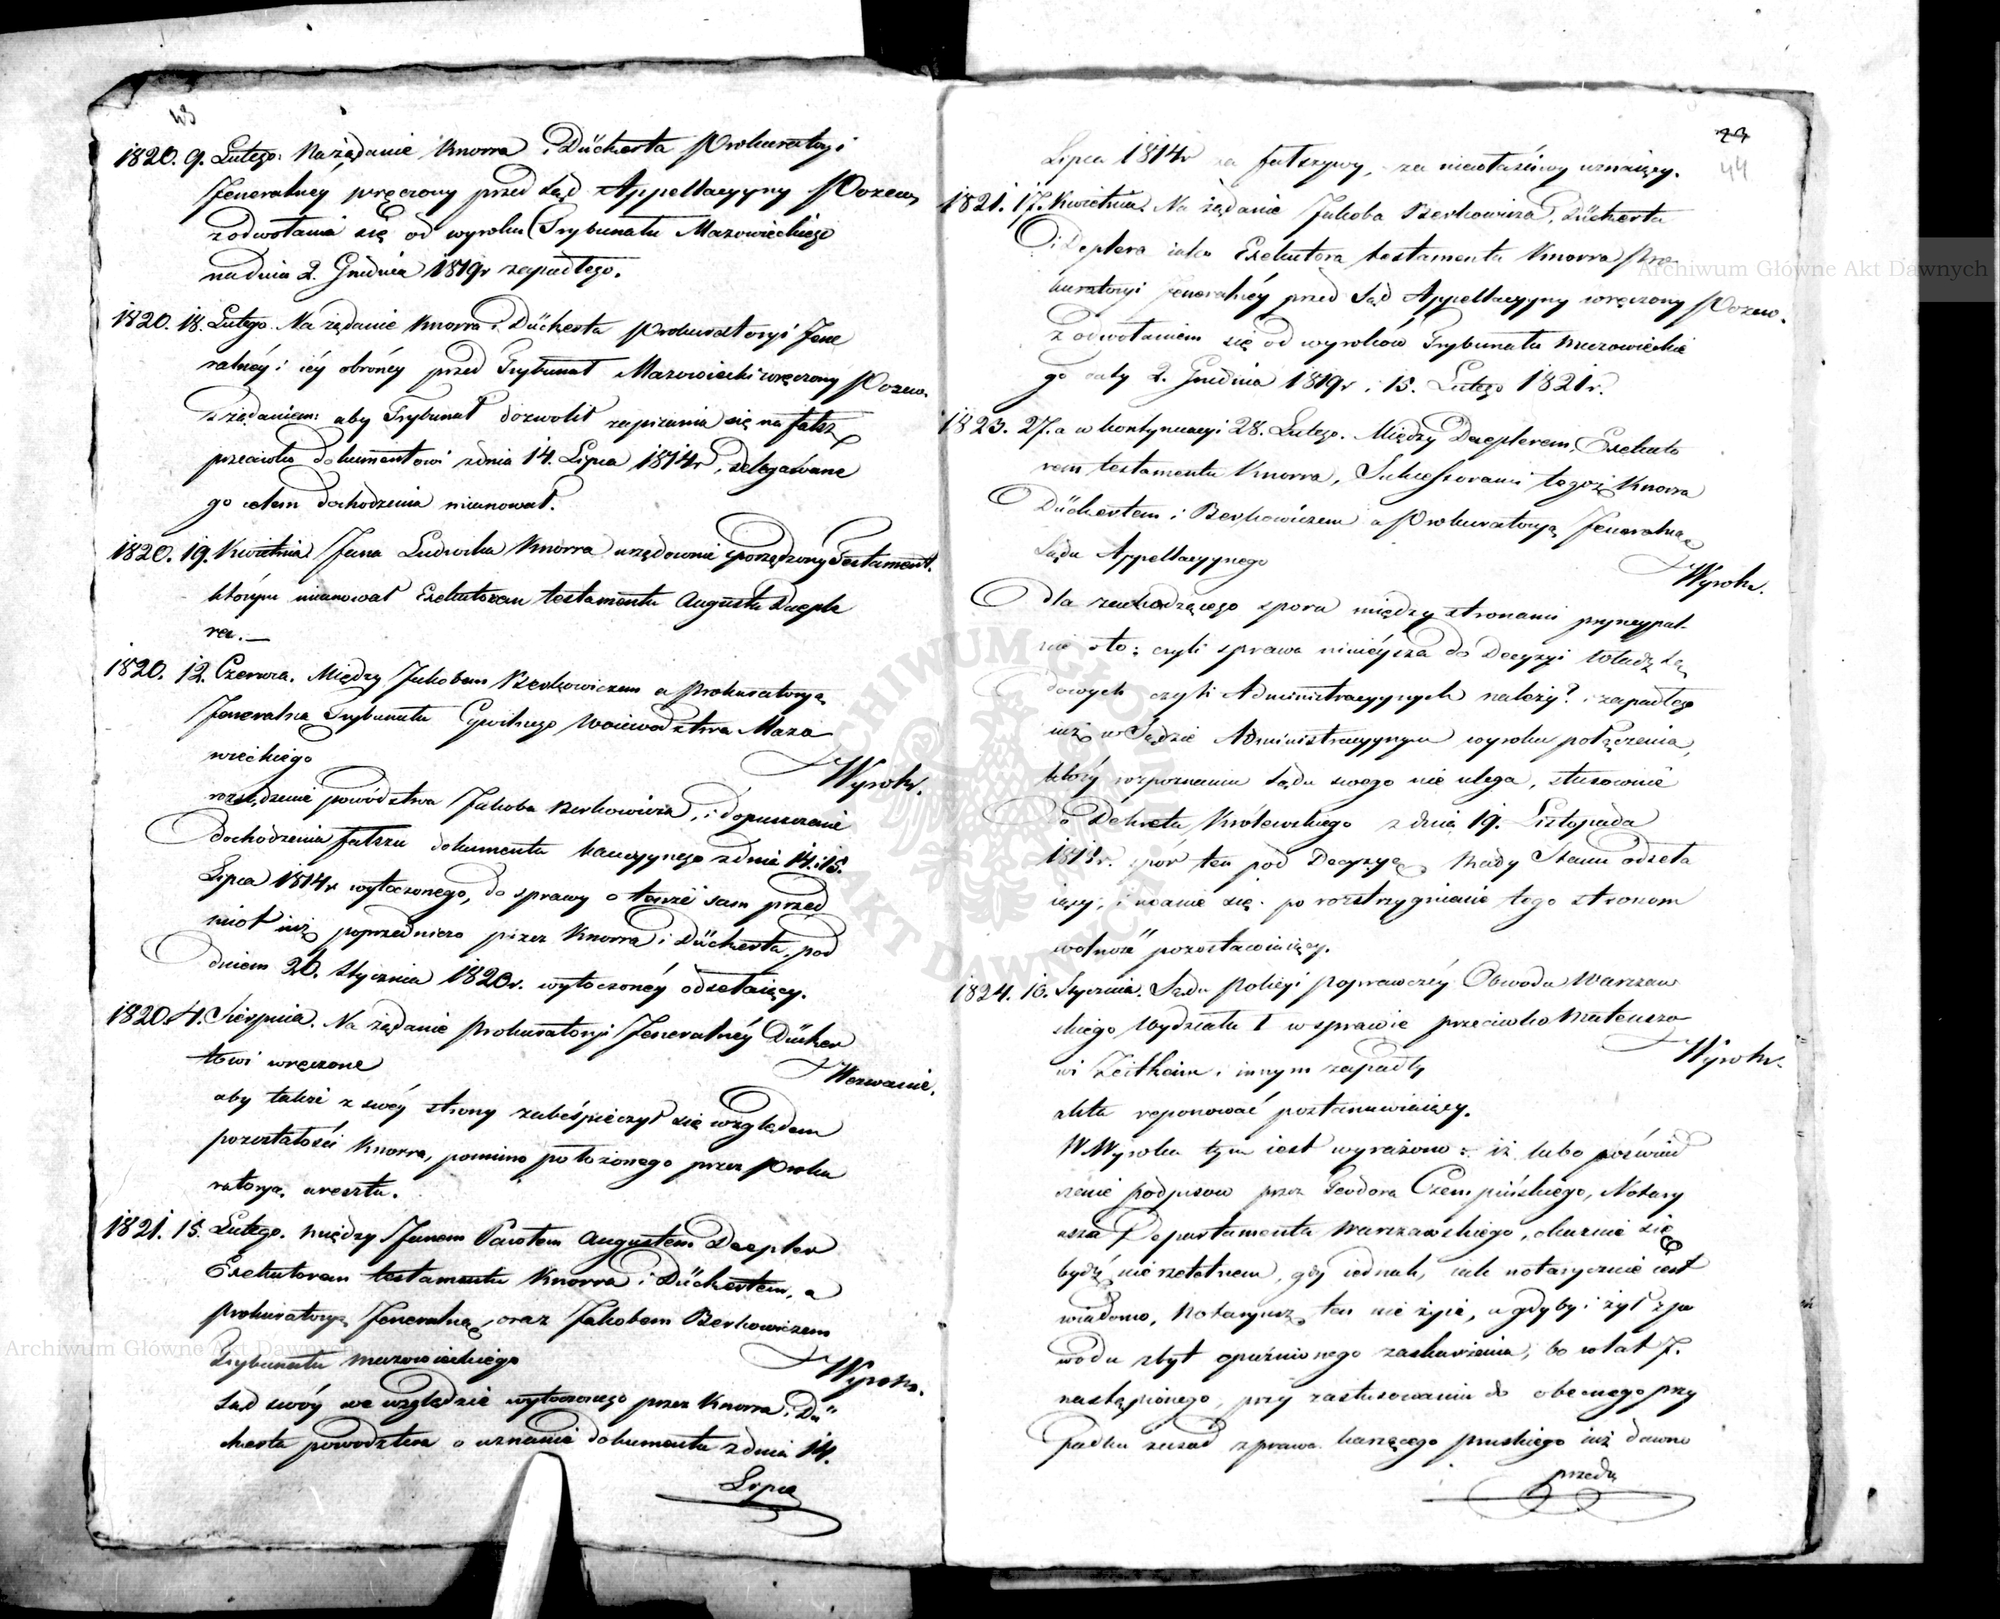 43
1820. 9. Lutego. Na żądanie Knorra i Dückerta Prokuratoryi
Jeneralnéy wręczony przed Sąd Appellacyyny Pozew,
z odwołania się od wyroku Trybunału Mazowieckiego
na dniu 2. Grudnia 1819r zapadłego.
1820. 18. Lutego. Na żądanie Knorra i Dückerta Prokuratoryi Jene
ralnéy i iéy obrońcy przed Trybunał Mazowiecki wręczony Pozew.
z żądaniem: aby Trybunał dozwolił zapisania się na fałsz
przeciwko dokumentowi z dnia 14. Lipca 1814r, delegowane
go celem dochodzenia mianował.
1820. 19. Kwietnia Jana Ludwika Knorra urzędownie sporządzony Testament.
którym mianował Exekutorem testamentu Augusta Daeple
ra. —
1820. 12. Czerwca. Między Jakobem Berkowiczem a Prokuratoryą
Jeneralną Trybunału Cywilnego Woiewodztwa Mazo
wieckiego
Wyrok.
rozsądzenie powództwa Jakoba Berkowicza, i dopuszczenie
dochodzenia fałszu dokumentu kaucyynego z dnia 14. i 15.
Lipca 1814r wytoczonego, do sprawy o tenże sam przed
miot iuż poprzedniczo przez Knorra i Dückerta, pod
dniem 26. Stycznia 1820r. wytoczonéy odsełaiący.
1820. 4. Sierpnia. Na żądanie Prokuratoryi Jeneralnéy Dücker
towi wręczone
Wezwanie.
aby także z swéy strony zabéśpieczył się względem
pozostałości Knorra, pomimo położonego przez Proku
ratoryą aresztu.
1821. 15. Lutego. między Janem Pawłem Augustem Daepler
Exekutorem testamentu Knorra i Dückertem, a
Prokuratoryą Jeneralną, oraz Jakobem Berkowiczem
Trybunału Mazowieckiego
Wyrok.
Sąd swóy we względzie wytoczonego przez Knorra i Dü
ckerta powodztwa o uznanie dokumentu z dnia 14.
Lipca
44
Lipca 1814r za fałszywy, za niewłaściwy uznaiący.
1821. 17. Kwietnia. Na żądanie Jakoba Berkowicza, Dückerta
i Deplera iako Exekutora testamentu Knorra Pro-
kuratoryi Jeneralnéy przed Sąd Appellacyyny wręczony Pozew.
z odwołaniem się od wyroków Trybunału Mazowieckie
go daty 2. Grudnia 1819r i 15. Lutego 1821r.
1823. 27. a w kontynuacyi 28. Lutego. Między Daeplerem, Exekuto
rem testamentu Knorra, Sukcessorami tegoż Knorra
Dückertem i Berkowiczem a Prokuratoryą Jeneralną
Sądu Appellacyynego
Wyrok.
dla zachodzącego sporu między stronami pryncypal-
nie o to: czyli sprawa ninieysza do Decyzyi władz Są
dowych czyli Administracyynych należy? i zapadłego
iuż w Sądzie Administracyynym wyroku połączenia,
który rozpoznaniu Sądu swego nie ulega, stosownie
do Dekretu Królewskiego z dnia 19. Listopada
spór ten pod Decyzyą Rady Stanu odseła
iący, i udanie się po rozstrzygnienie tego stronom
wolność pozostawiaiący.
1824. 16. Stycznia. Sądu Policyi poprawczéy Obwodu Warszaw
skiego Wydziału I w sprawie przeciwko Mateuszo
wi Zeitheim i innym zapadły
Wyrok.
akta reponować postanawiaiący.
W Wyroku tym iest wyrażono: iż lubo poświad
czenie podpisow przez Teodora Czempińskiego, Notary
usza Departamentu Warszawskiego, okazuie się
bydź nie rzetelnem, gdy iednak, iak notarycznie iest
wiadomo, Notaryusz ten nie żyie, a gdyby i żył z po
wodu zbyt opuźnionego zaskarżenia, bo w lat 7.
nastąpionego, przy zastosowaniu do obecnego przy
padku zasad z prawa karzącego pruskiego iuż dawno
przeda